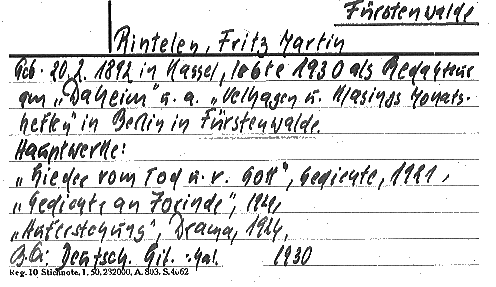 Fürstenwalde
Rintelen, Fritz Martin
Geb. 20.2.1892 in Kassel, lebte 1930 als Redakteur
am „Daheim" u. a. „Velhagen u. Klasings Monats-
heften" in Berlin in Fürstenwalde.
Hauptwerke:
„Lieder vom Tod u. v. Gott", Gedichte, 1921,
„Gedichte an Jorinde", 1924,
„Auferstehung", Drama, 1924,
Deutsch. Lit. -Kal. 1930
Reg. 10 Stichnote, I, 50, 232000, A. 803. S. 4062